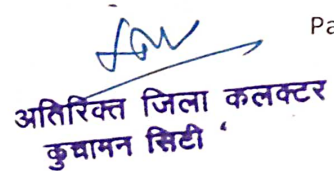 Pa
अतिरिक्त जिला कलक्टर
कुचामन सिटी